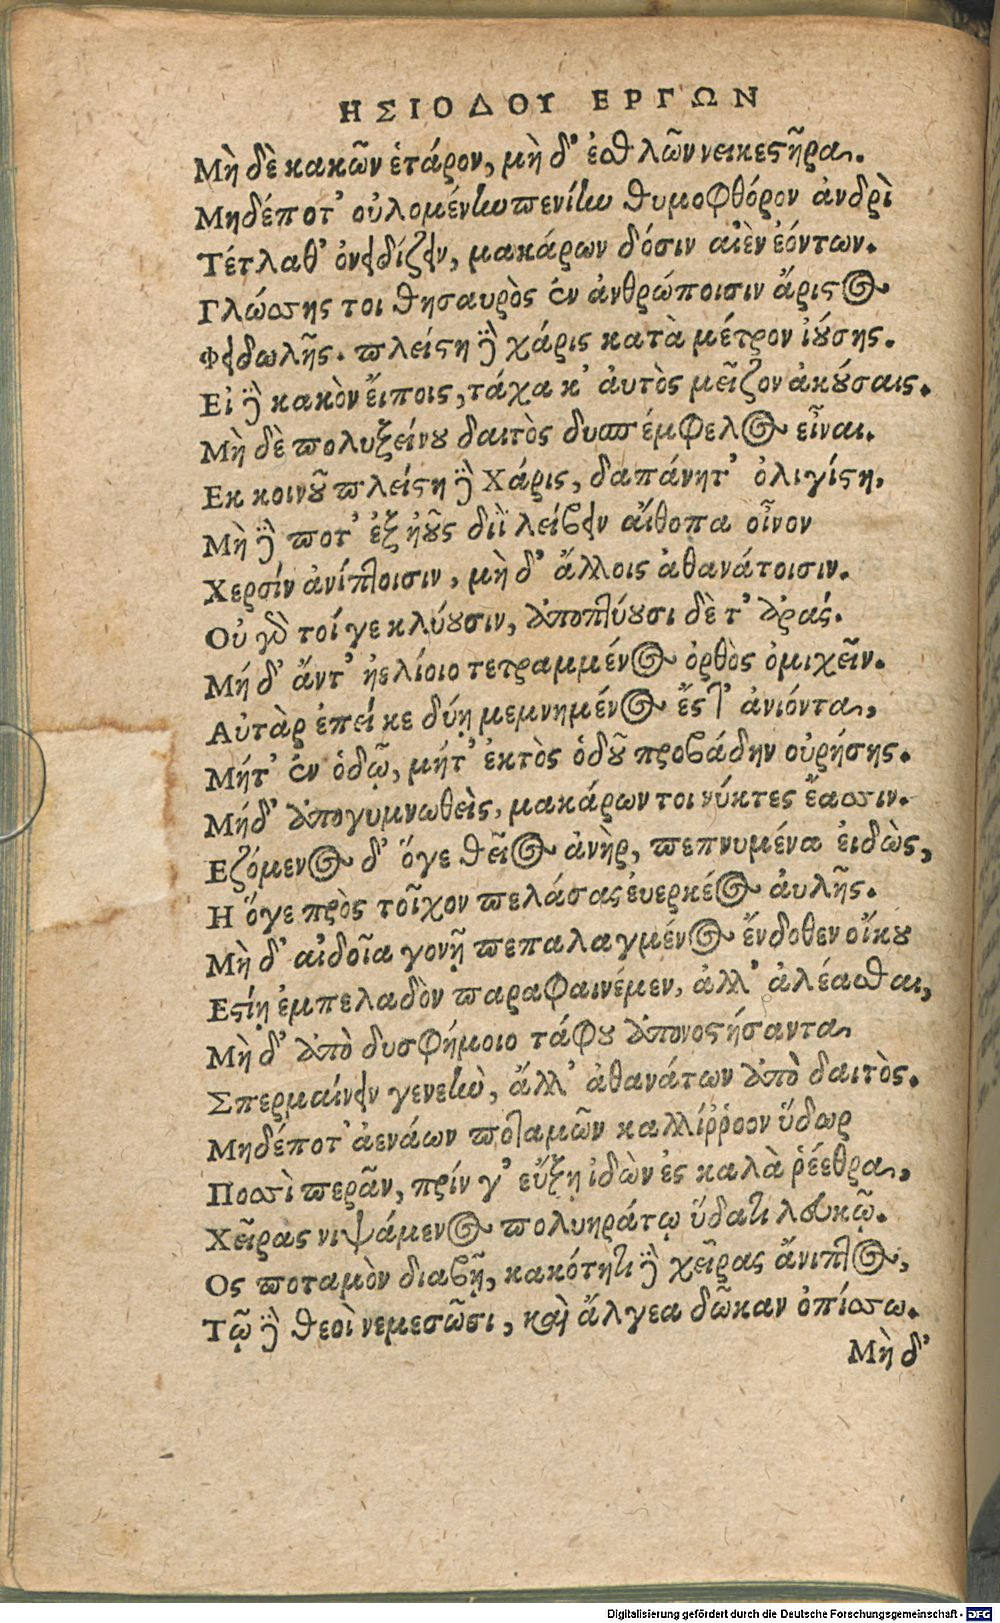 ΗΣΙΟΔΟΥ ΕΡΓΩΝ
Μὴ δὲ κακῶν ἑτάρον, μὴ δ' ἐσθλῶν νεικεστῆρα.
Μηδέποτ' οὐλομένην πενίην θυμοφθόρον ἀνδρὶ
Τέτλαθ' ὀνειδίζειν, μακάρων δόσιν αἰὲν ἐόντων.
Γλώσσης τοι θησαυρὸς ἐν ἀνθρώποισιν ἄριστος
Φειδωλῆς. πλείστη δὲ χάρις κατὰ μέτρον ἰούσης.
Εἰ δὲ κακὸν ἔιποις, τάχα κ' ἀυτὸς μεῖζον ἀκούσαις.
Μὴ δὲ πολυξείνου δαιτὸς δυσπέμφελος εἶναι.
Εκ κοινοῦ πλείστη δὲ Χάρις, δαπάνητ' ὀλιγίστη,
Μὴ δέ ποτ' ἐξ ἠοῦς διῒ λείβειν αἴθοπα οἶνον
Χερσίν ἀνίπτοισιν, μὴ δ' ἄλλοις ἀθανάτοισιν.
Οὐ γὰρ τοί γε κλύουσιν, ἀποπτύουσι δὲ τ' ἀράς.
Μή δ' ἄντ' ἠελίοιο τετραμμένος ὀρθὸς ὀμιχεῖν.
Αὐτὰρ ἐπεί κε δύῃ μεμνημένος ἔς τ' ἀνιόντα,
Μήτ' ἐν ὁδῷ, μήτ' ἐκτὸς ὁδοῦ προβάδην οὐρήσῃς.
Μήδ' ἀπογυμνωθεὶς, μακάρων τοι νύκτες ἔασσιν.
Εζόμενος δ' ὅγε θεῖος ἀνὴρ, πεπνυμένα ἐιδὼς,
Η ὅγε πρὸς τοῖχον πελάσας ἐυερκέος ἀυλῆς.
Μὴ δ' αἰδοῖα γονῇ πεπαλαγμένος ἔνδοθεν οἴκου
Εστίῃ ἐμπελαδὸν παραφαινέμεν, ἀλλ' ἀλέασθαι,
Μὴ δ' ἀπὸ δυσφήμοιο τάφου ἀπονοστήσαντα
Σπερμαίνειν γενεὴν, ἄλλ' ἀθανάτων ἀπὸ δαιτὸς.
Μηδέποτ' ἀενάων ποταμῶν καλλίῤῥοον ὕδωρ
Ποσσὶ περᾶν, πρίν γ' εὔξῃ ἰδὼν ἐς καλὰ ῥέεθρα,
Χεῖρας νιψάμενος πολυηράτῳ ὕδατι λευκῷ.
Ος ποταμὸν διαβῇ, κακότητι δὲ χεῖρας ἄνιπτος,
Τῷ δὲ θεοὶ νεμεσῶσι, καὶ ἄλγεα δῶκαν ὀπίσσω.
Μὴ δ'
Digitalisierung gefördert durch die Deutsche Forschungsgemeinschaft - DFG